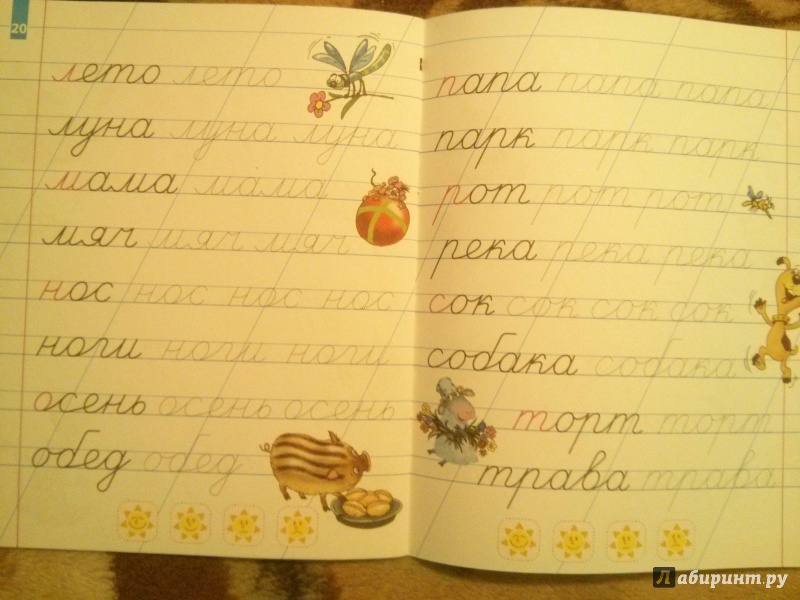 20
лето лето
луна луна луна
мама мама
мяч мяч мяч
нос нос нос нос
ноги ноги ноги
осень осень осень
обед обед
папа папа папа
парк парк парк
рот рот рот
река река река
сок сок сок сок
собака собака
торт торт
трава трава
Лабиринт.ру